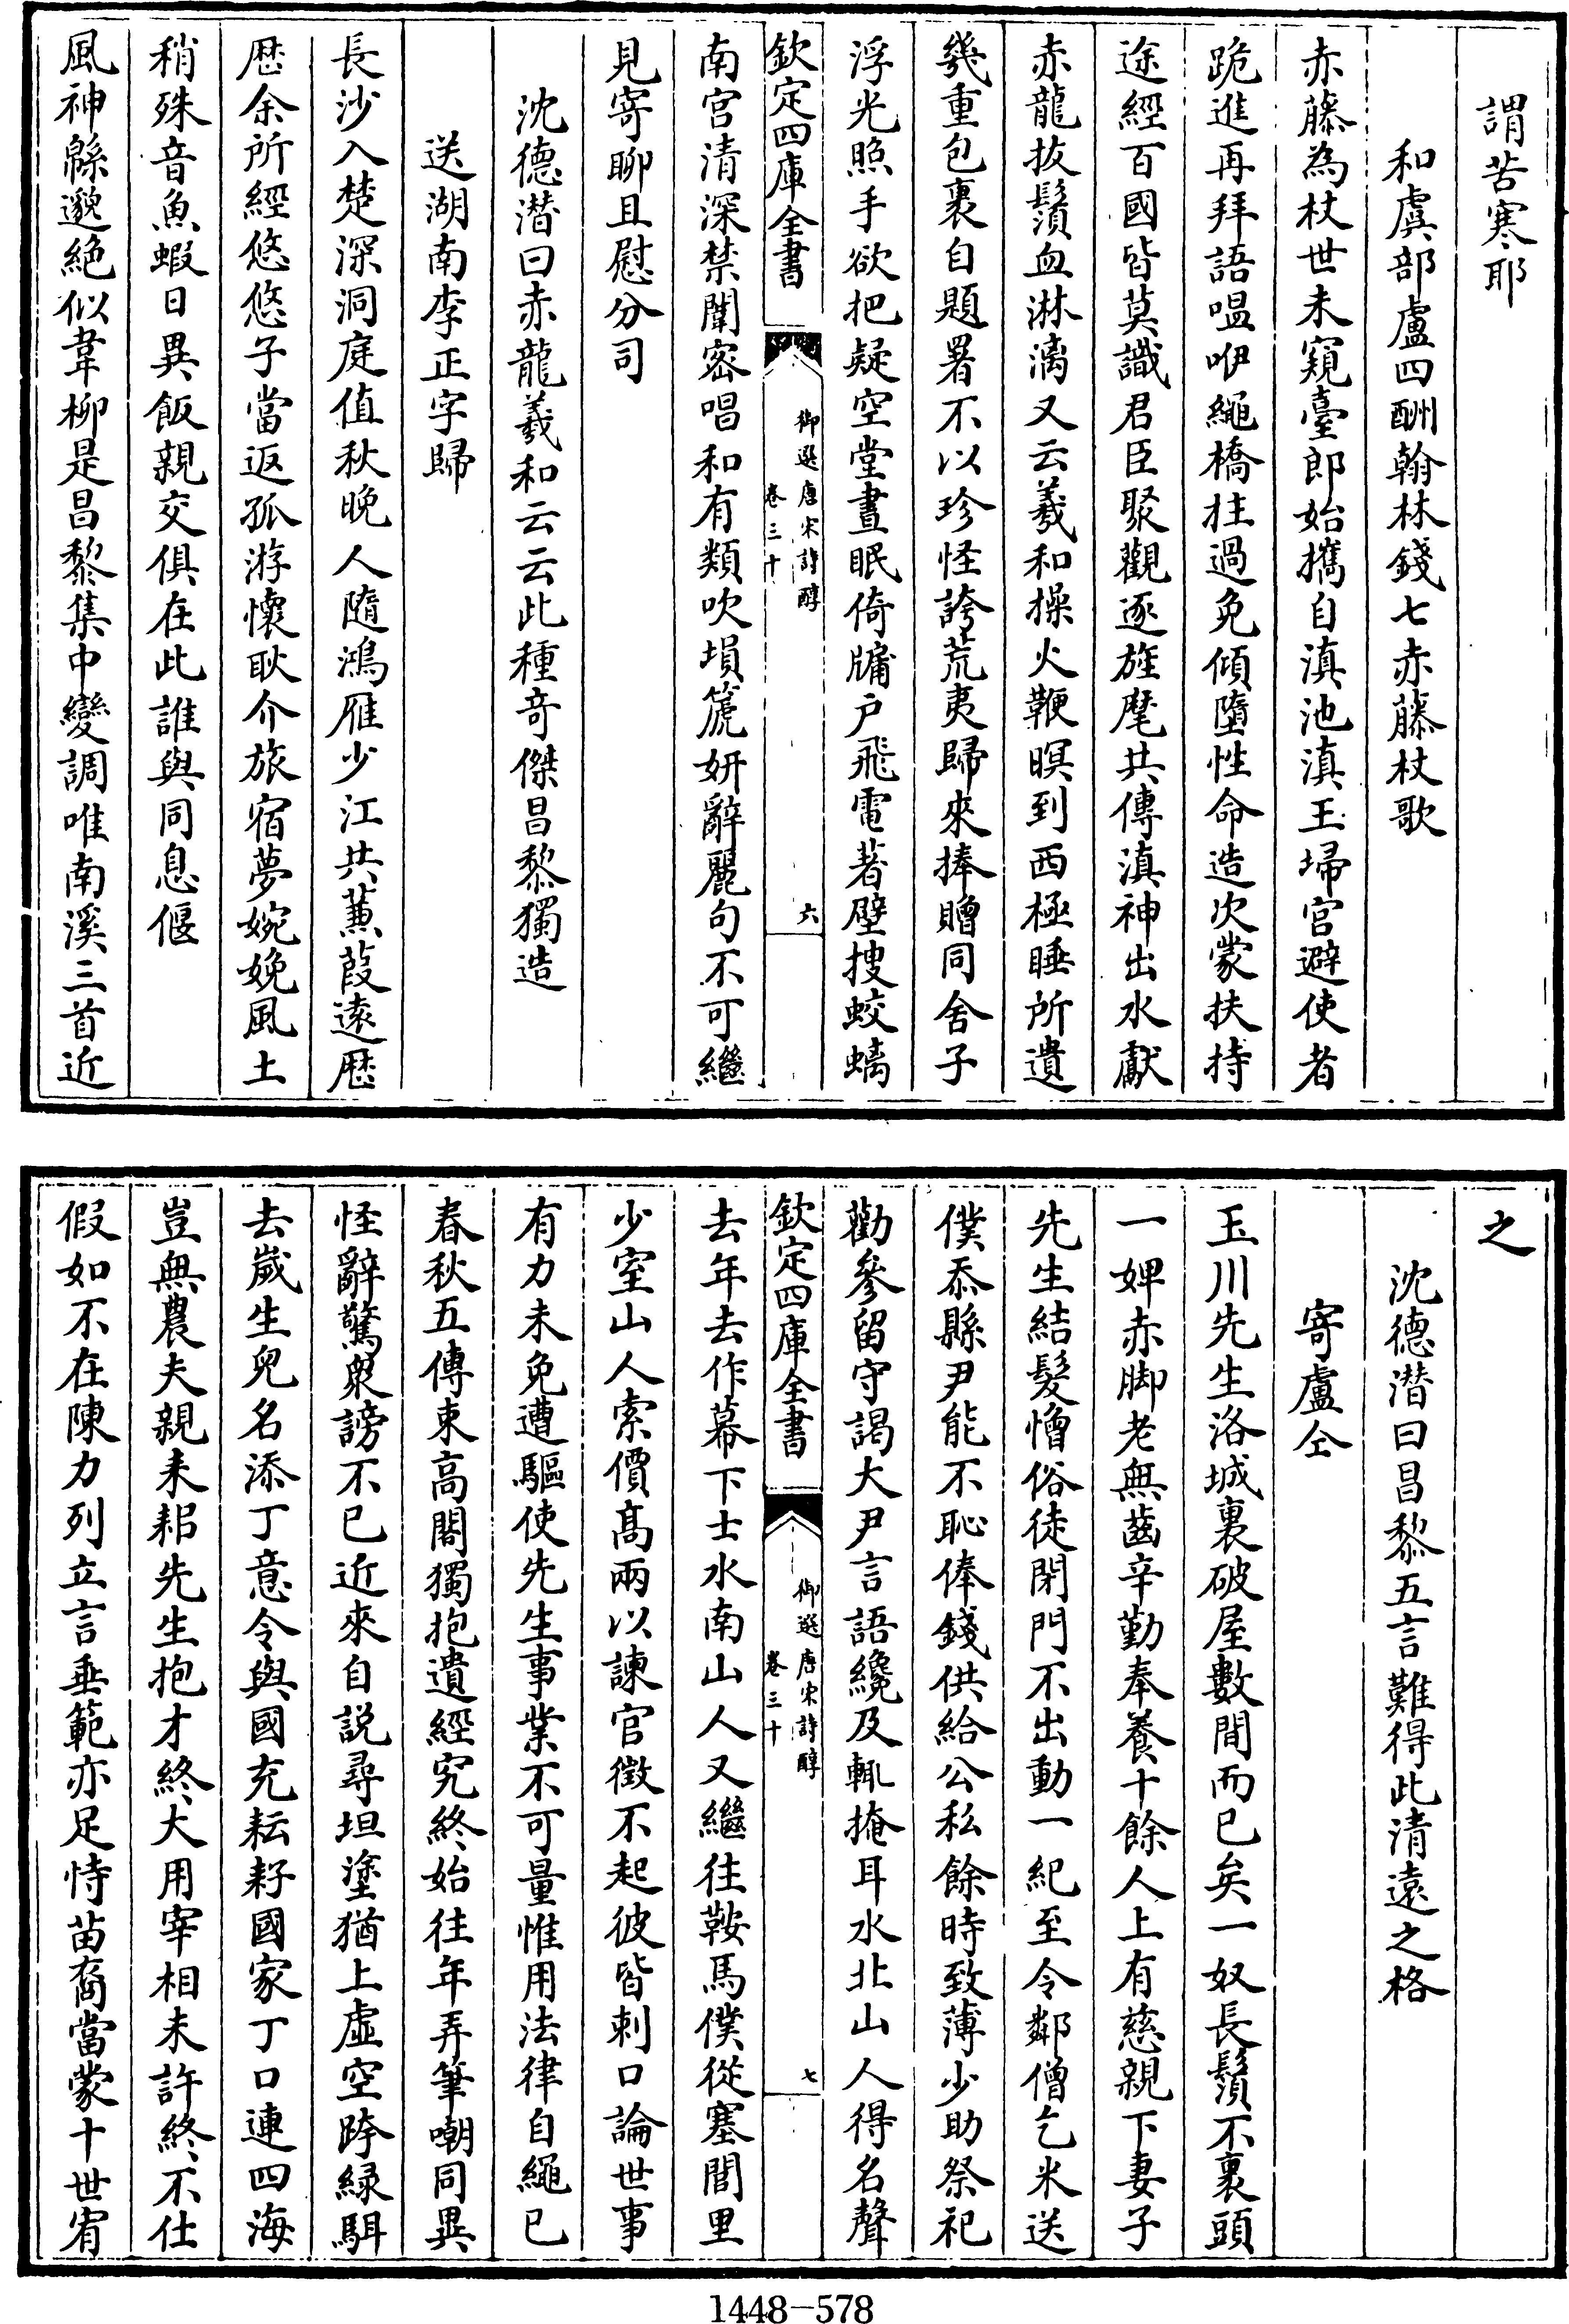 謂苦寒耶
和虞部盧四酬翰林錢七赤藤杖歌
赤藤為杖世未窺臺郎始攜自滇池滇王埽宫避使者
跪進再拜語嗢咿繩橋拄過免傾墮性命造次蒙扶持
途經百國皆莫識君臣聚觀逐旌麾共傳滇神出水獻
赤龍拔鬚血淋漓又云羲和操火鞭暝到西極睡所遺
㡬重包裹自題署不以珍怪誇荒夷歸來捧贈同舍子
浮光照手欲把疑空堂晝眠倚牖户飛電著壁搜蛟螭
欽定四庫全書
御選唐宋詩醇
卷三十
六
南宫清深禁闈密唱和有類吹塤篪妍辭麗句不可繼
見寄聊且慰分司
沈德潜曰赤龍羲和云云此種竒傑昌黎獨造
送湖南李正字歸
長沙入楚深洞庭值秋晚人隨鴻雁少江共蒹葭逺歴
歴余所經悠悠子當返孤游懷耿介旅宿夢婉娩風土
稍殊音魚蝦日異飯親交俱在此誰與同息偃
風神緜邈絶似韋柳是昌黎集中變調唯南溪三首近
之
沈德潜曰昌黎五言難得此清遠之格
寄盧仝
玉川先生洛城裏破屋數間而已矣一奴長鬚不裹頭
一婢赤脚老無齒辛勤奉養十餘人上有慈親下妻子
先生結髮憎俗徒閉門不出動一紀至令鄰僧乞米送
僕忝縣尹能不恥俸錢供給公私餘時致薄少助祭祀
勸參留守謁大尹言語纔及輒掩耳水北山人得名聲
欽定四庫全書
御選唐宋詩醇
卷三十
七
去年去作幕下士水南山人又繼往鞍馬僕從塞閭里
少室山人索價髙兩以諫官徴不起彼皆刺口論世事
有力未免遭驅使先生事業不可量惟用法律自繩已
春秋五傳束高閣獨抱遺經究終始往年弄筆嘲同異
怪辭驚衆謗不已近來自説尋坦塗猶上虛空跨緑駬
去嵗生兒名添丁意令與國充耘耔國家丁口連四海
豈無農夫親耒耜先生抱才終大用宰相未許終不仕
假如不在陳力列立言垂範亦足恃苗裔當蒙十世宥
1448－578